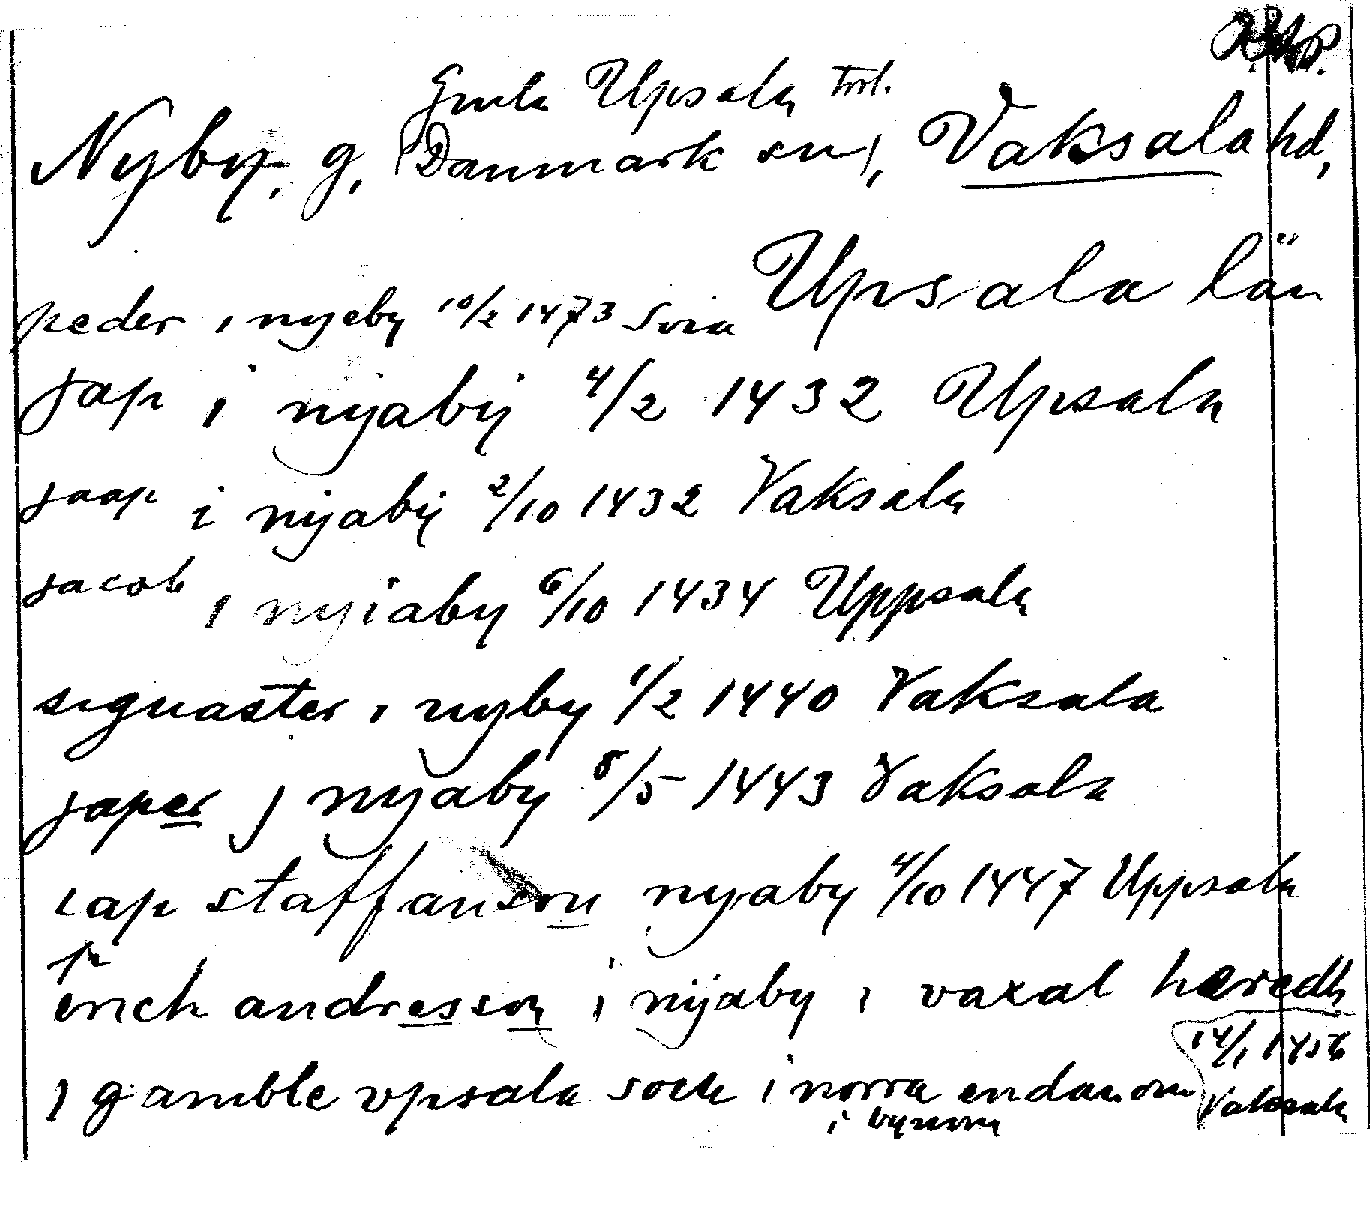 Gmla Upsala
Nyby, g. (Danmark sn), Vaksala hd,
Upsala län
peder i nyeby 10/2 1473
jap i nyaby 4/2 1432 Upsala
jaap i nyaby 2/10 1432 Vaksala
jacob i nyiaby 6/10 1434 Uppsala
signaster i nyby 1/2 1440 Vaksala
japer j nyaby 8/5 1443 Vaksala
iap staffanson nyaby 4/10 1447 Uppsala
erich andresson i nyaby i vaxal hæredh
14/1 1456
j gamble vpsala sock i norra endanom Vaksala
i byenom